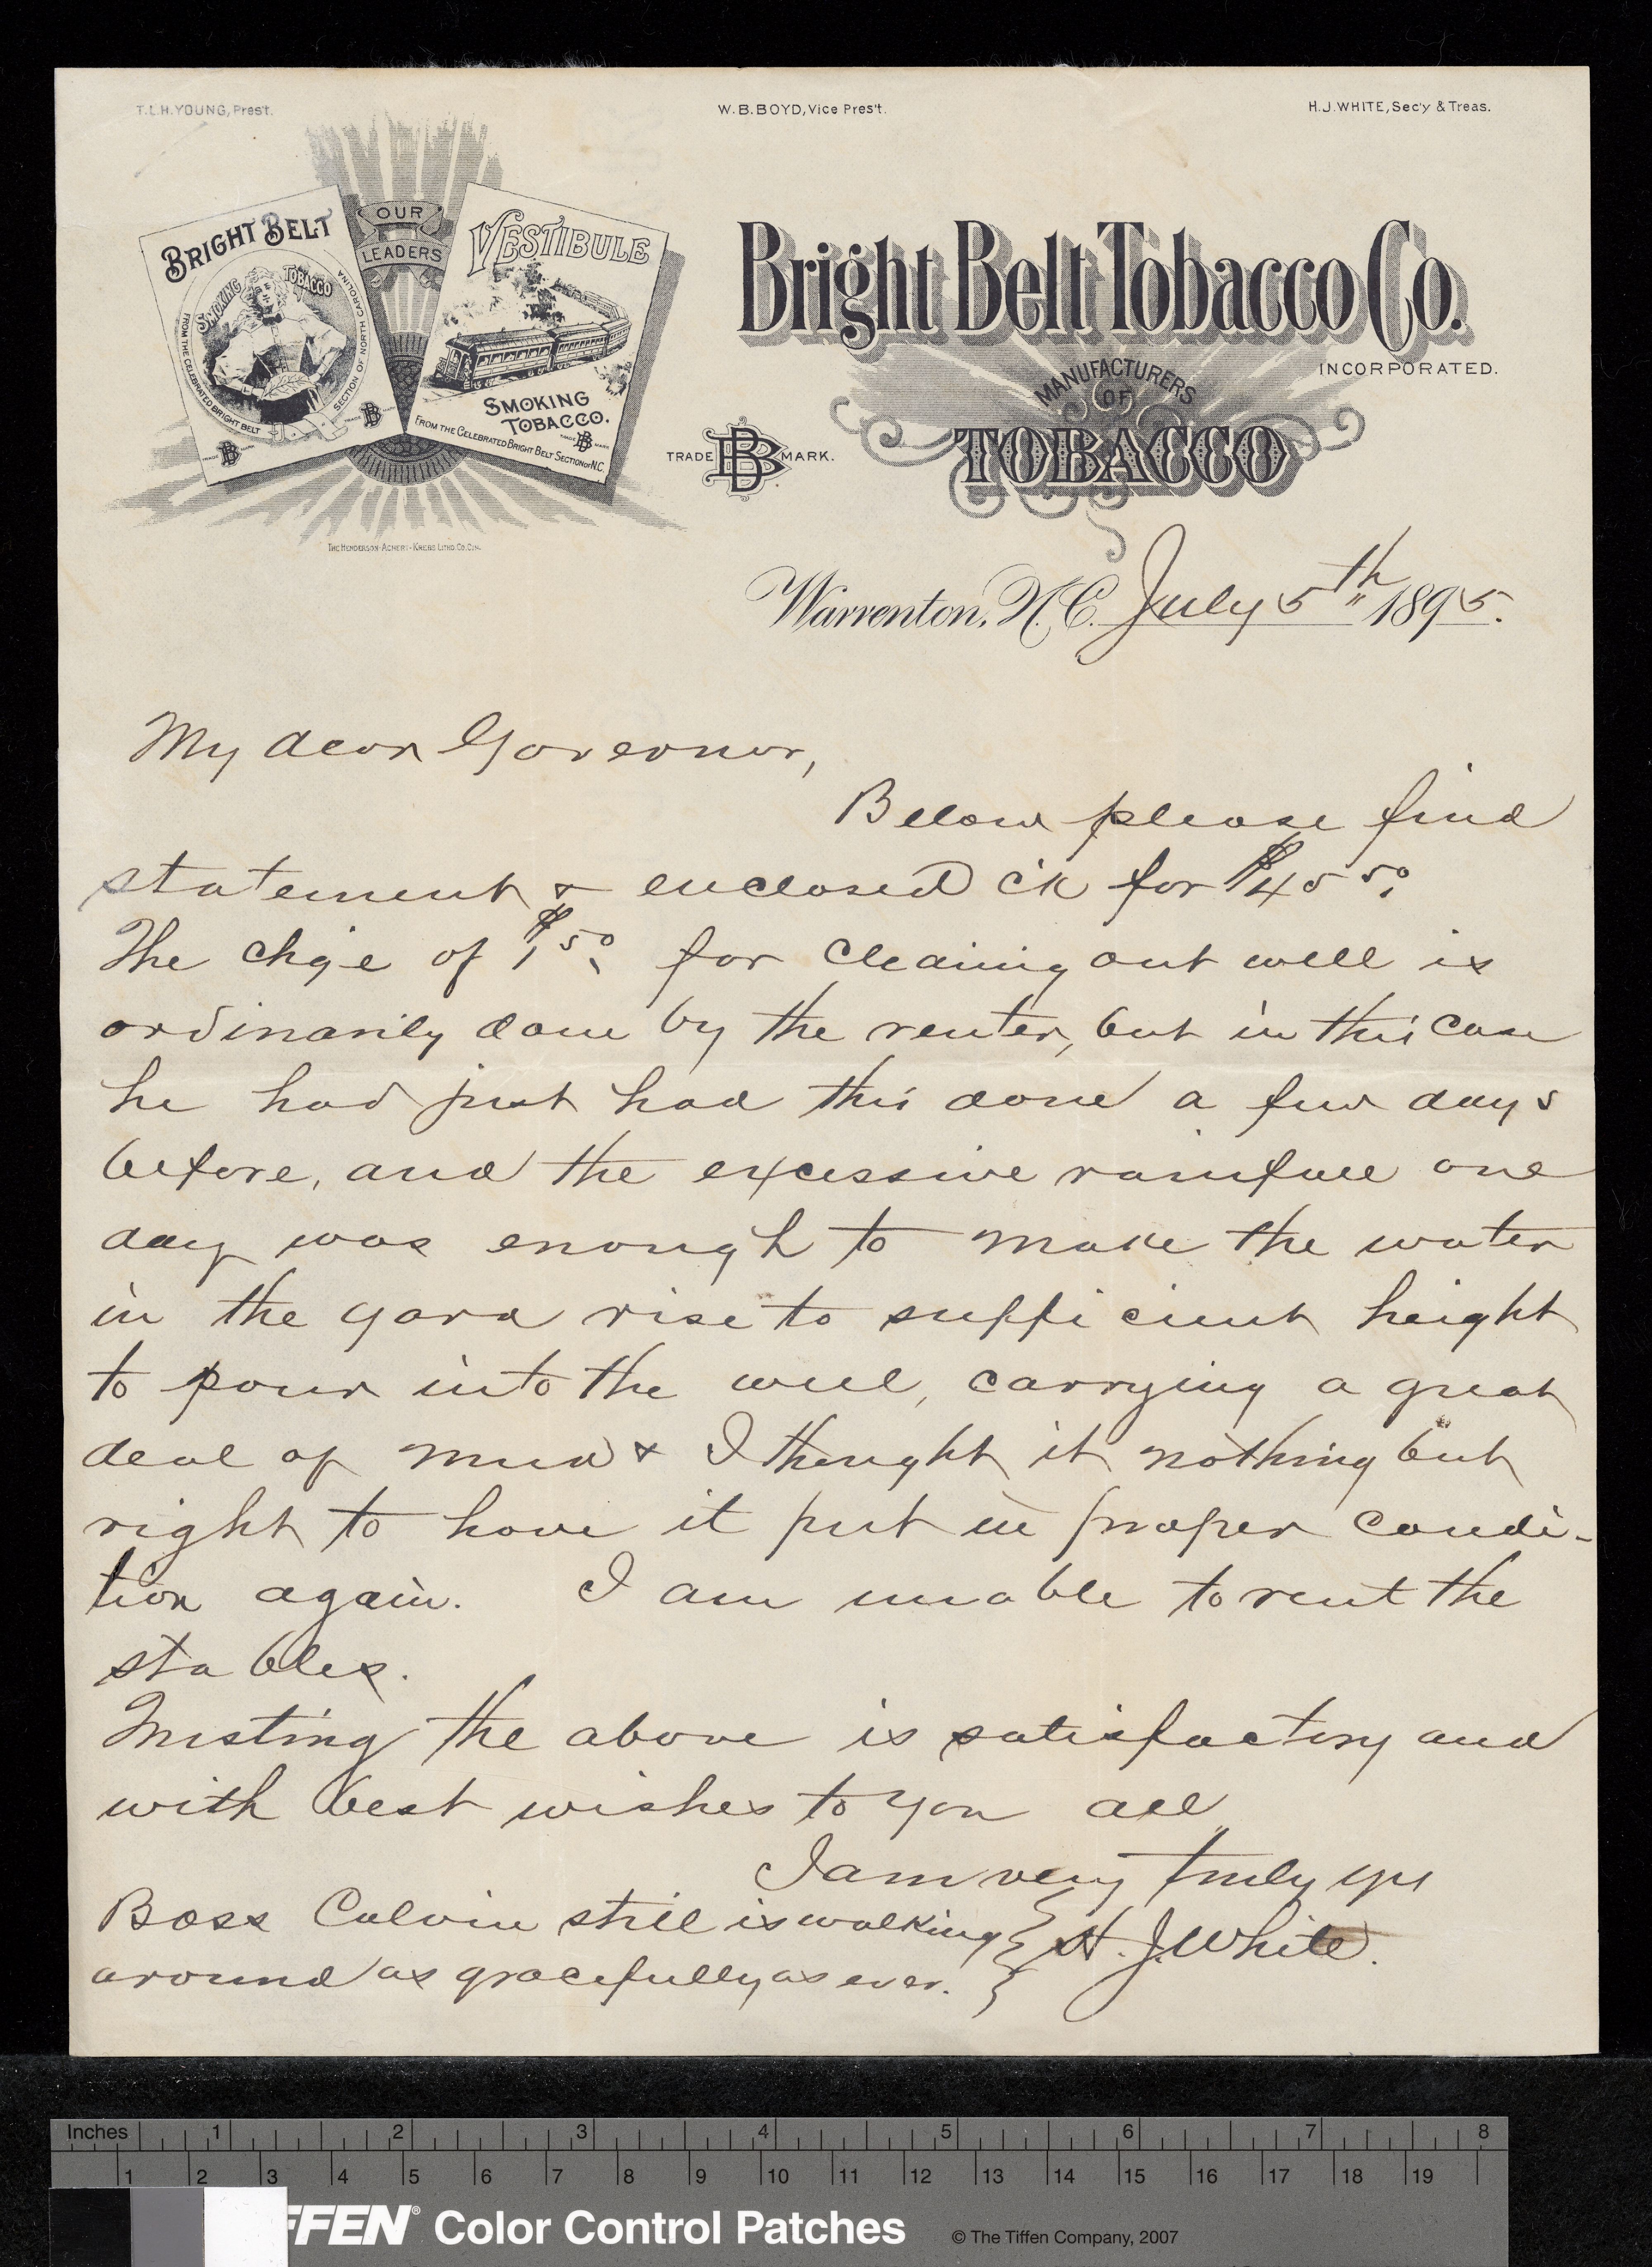 T.L.H. YOUNG, Pres't.
W.B. BOYD, Vice Pres't.
H.J. WHITE, Sec'y & Treas.
BRIGHT BELT
SMOKING TOBACCO
FROM THE CELEBRATED BRIGHT BELT SECTION OF NORTH CAROLINA
TRADE BB MARK
TRADE BB MARK
OUR
LEADERS
VESTIBULE
SMOKING
TOBACCO.
TRADE BB MARK
FROM THE CELEBRATED BRIGHT BELT SECTION OF N.C.
THE HENDERSON-ACHERT-KREBS LITHO. CO. CIN.
Bright Belt Tobacco Co.
INCORPORATED.
MANUFACTURERS
OF
TOBACCO
TRADE BB MARK.
Warrenton, N.C. July 5th 1895.
My dear Governor,
Below please find
statement & enclosed c'k for $45 50.
The chg'e of $1 50. for cleaning out well is
ordinarily done by the renter, but in this case
he had just had this done a few days
before, and the excessive rainfall one
day was enough to make the water
in the yard rise to sufficient height
to pour into the well, carrying a great
deal of mud & I thought it nothing but
right to have it put in proper condi-
tion again. I am unable to rent the
stables.
Trusting the above is satisfactory and
with best wishes to you all,
I am very truly yrs
H. J. White.
Boss Calvin still is walking
around as gracefully as ever.
Inches 1 2 3 4 5 6 7 8
1 2 3 4 5 6 7 8 9 10 11 12 13 14 15 16 17 18 19
FFEN® Color Control Patches © The Tiffen Company, 2007